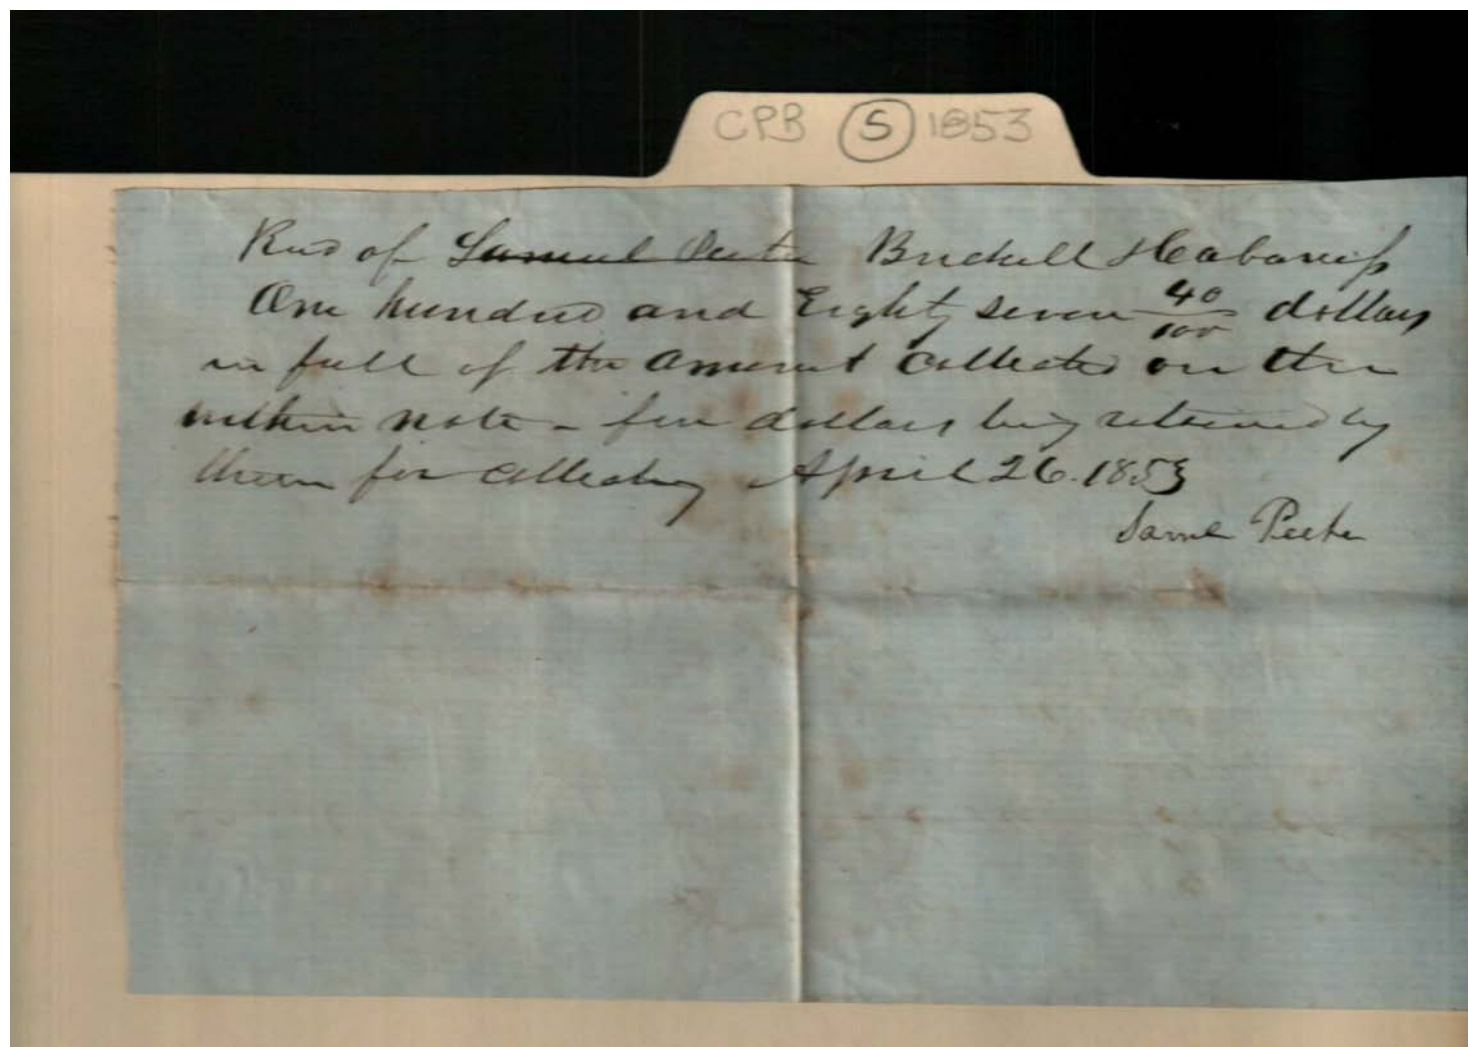 CPB S 1853
Recd of Samuel Peete Brickell & Cabaniss
One hundred and Eighty seven 40/100 dollars
in full of the amount collected on the
within note - five dollars being retained by
them for collecting April 26. 1853
Saml Peete